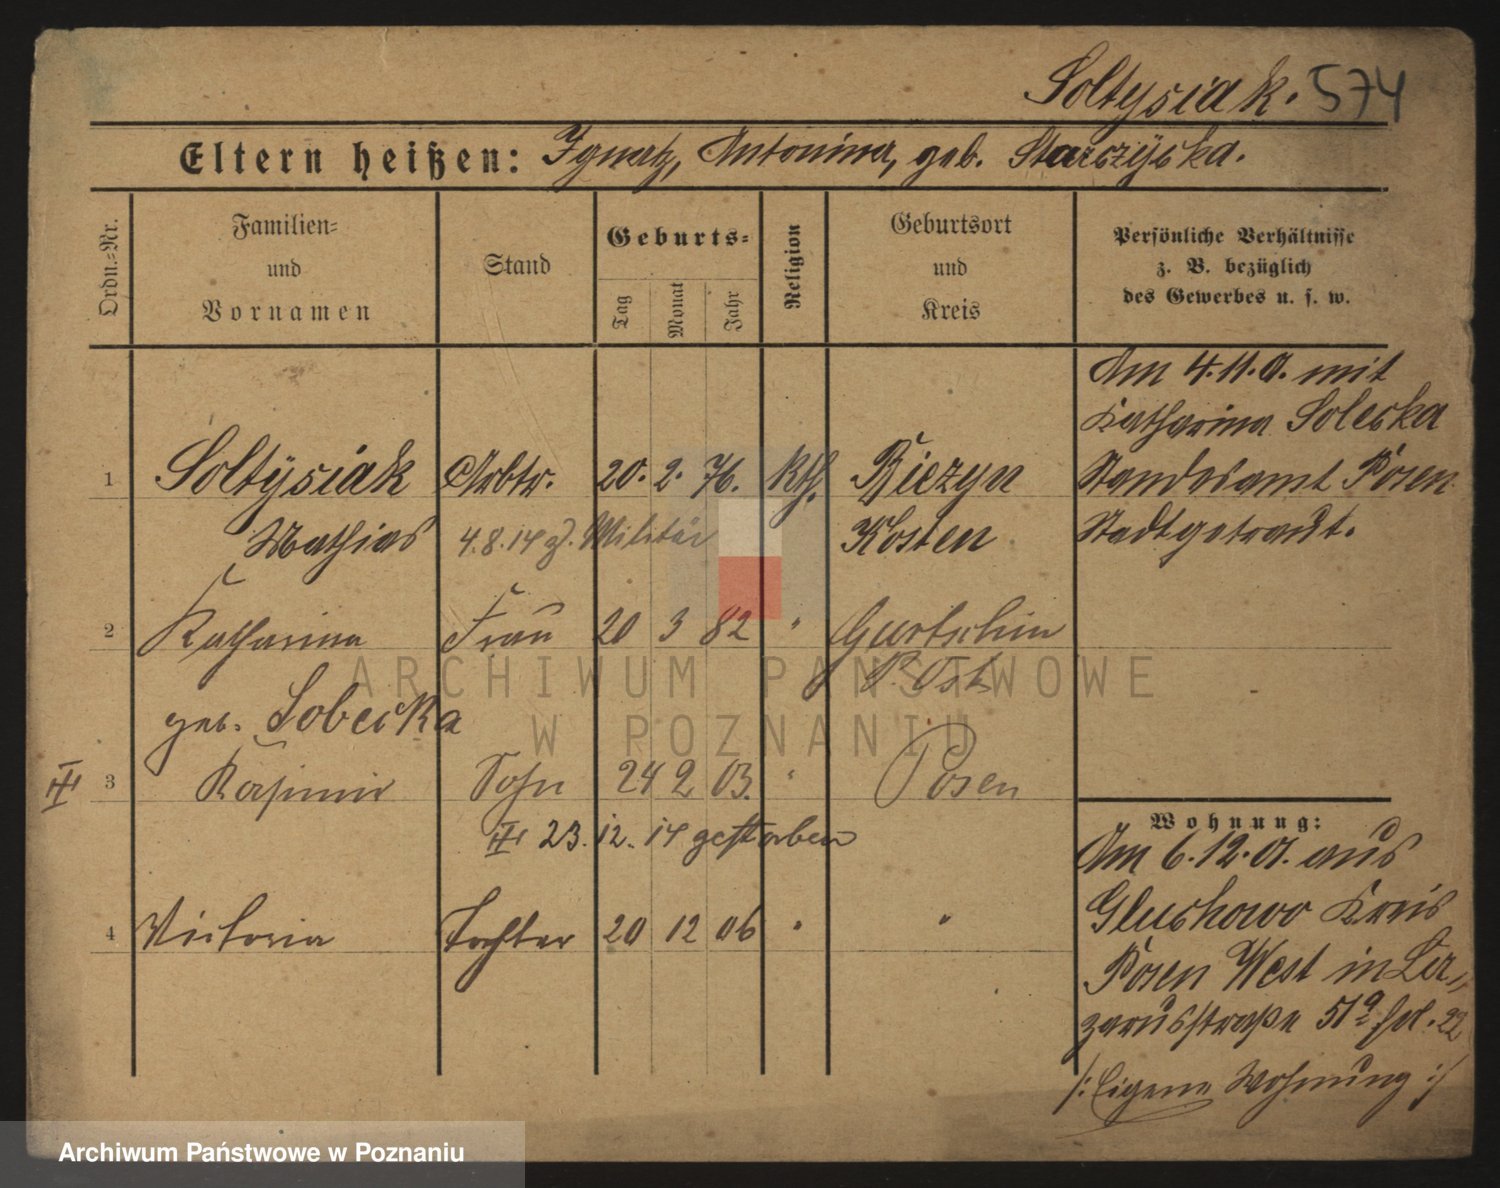 Soltysiak. 574
Eltern heißen: Ignatz, Antonina, geb. Starczÿska.
Ordn.-Nr.
Familien-
und
Vornamen
Stand
Geburts-
Tag
Monat
Jahr
Religion
Geburtsort
und
Kreis
Persönliche Verhältnisse
z. B. bezüglich
des Gewerbes u. s. w.
1 Soltÿsiak Arbtr. 20. 2. 76. Kth. Biezyn
Mathias 4.8.14 z. Militär Kosten
Am 4.11.01. mit
Katharina Solecka
Standesamt Posen
Stadt getraut.
2 Katharina Frau 20 3 82 " Gurtschin
P. Ost
geb. Sobecka
III 3 Kasimir Sohn 24 2 03. " Posen
III 23.12.14 gestorben
4 Victoria Tochter 20 12 06 " "
Wohnung:
Am 6.12.01. aus
Gluchowo Kreis
Posen West in La-
zarusstraße 51a bei. 22
/: Eigene Wohnung :/
ARCHIWUM PAŃSTWOWE
W POZNANIU
Archiwum Państwowe w Poznaniu